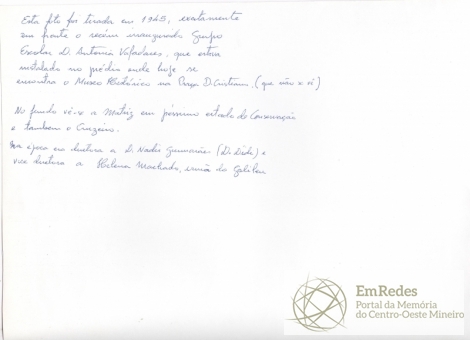 Esta foto foi tirada em 1945, exatamente
em frente o recém inaugurado Grupo
Escolar D. Antonia Valadares, que estava
instalado no prédio onde hoje se
encontra o Museu Histórico na Praça D. Cristiano. (que não x vê)
No fundo vê-se a Matriz em péssimo estado de Conservação
e tambem o Cruzeiro.
Na época era diretora a D. Nadir Guimarães (D. Didi) e
vice diretora a Helena Machado, irmã do Galileu
EmRedes
Portal da Memória
do Centro-Oeste Mineiro